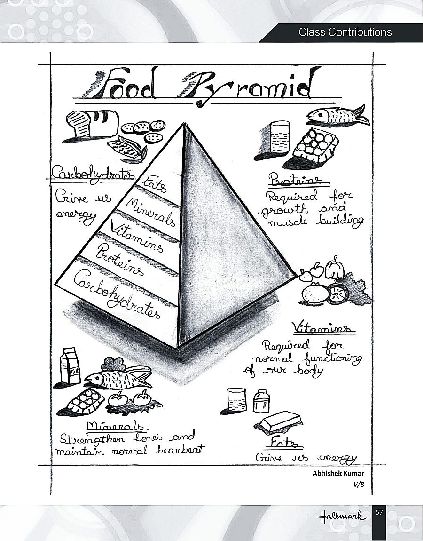 Class Contributions
Food Pyramid
Carbohydrates
Give us
energy
Fats
Minerals
Vitamins
Proteins
Carbohydrates
Proteins
Required for
growth and
muscle building
Vitamins
Required for
normal functioning
of our body
Minerals
Strengthen bones and
maintain normal heartbeat
Fats
Give us energy
Abhishek Kumar
V/B
hallmark